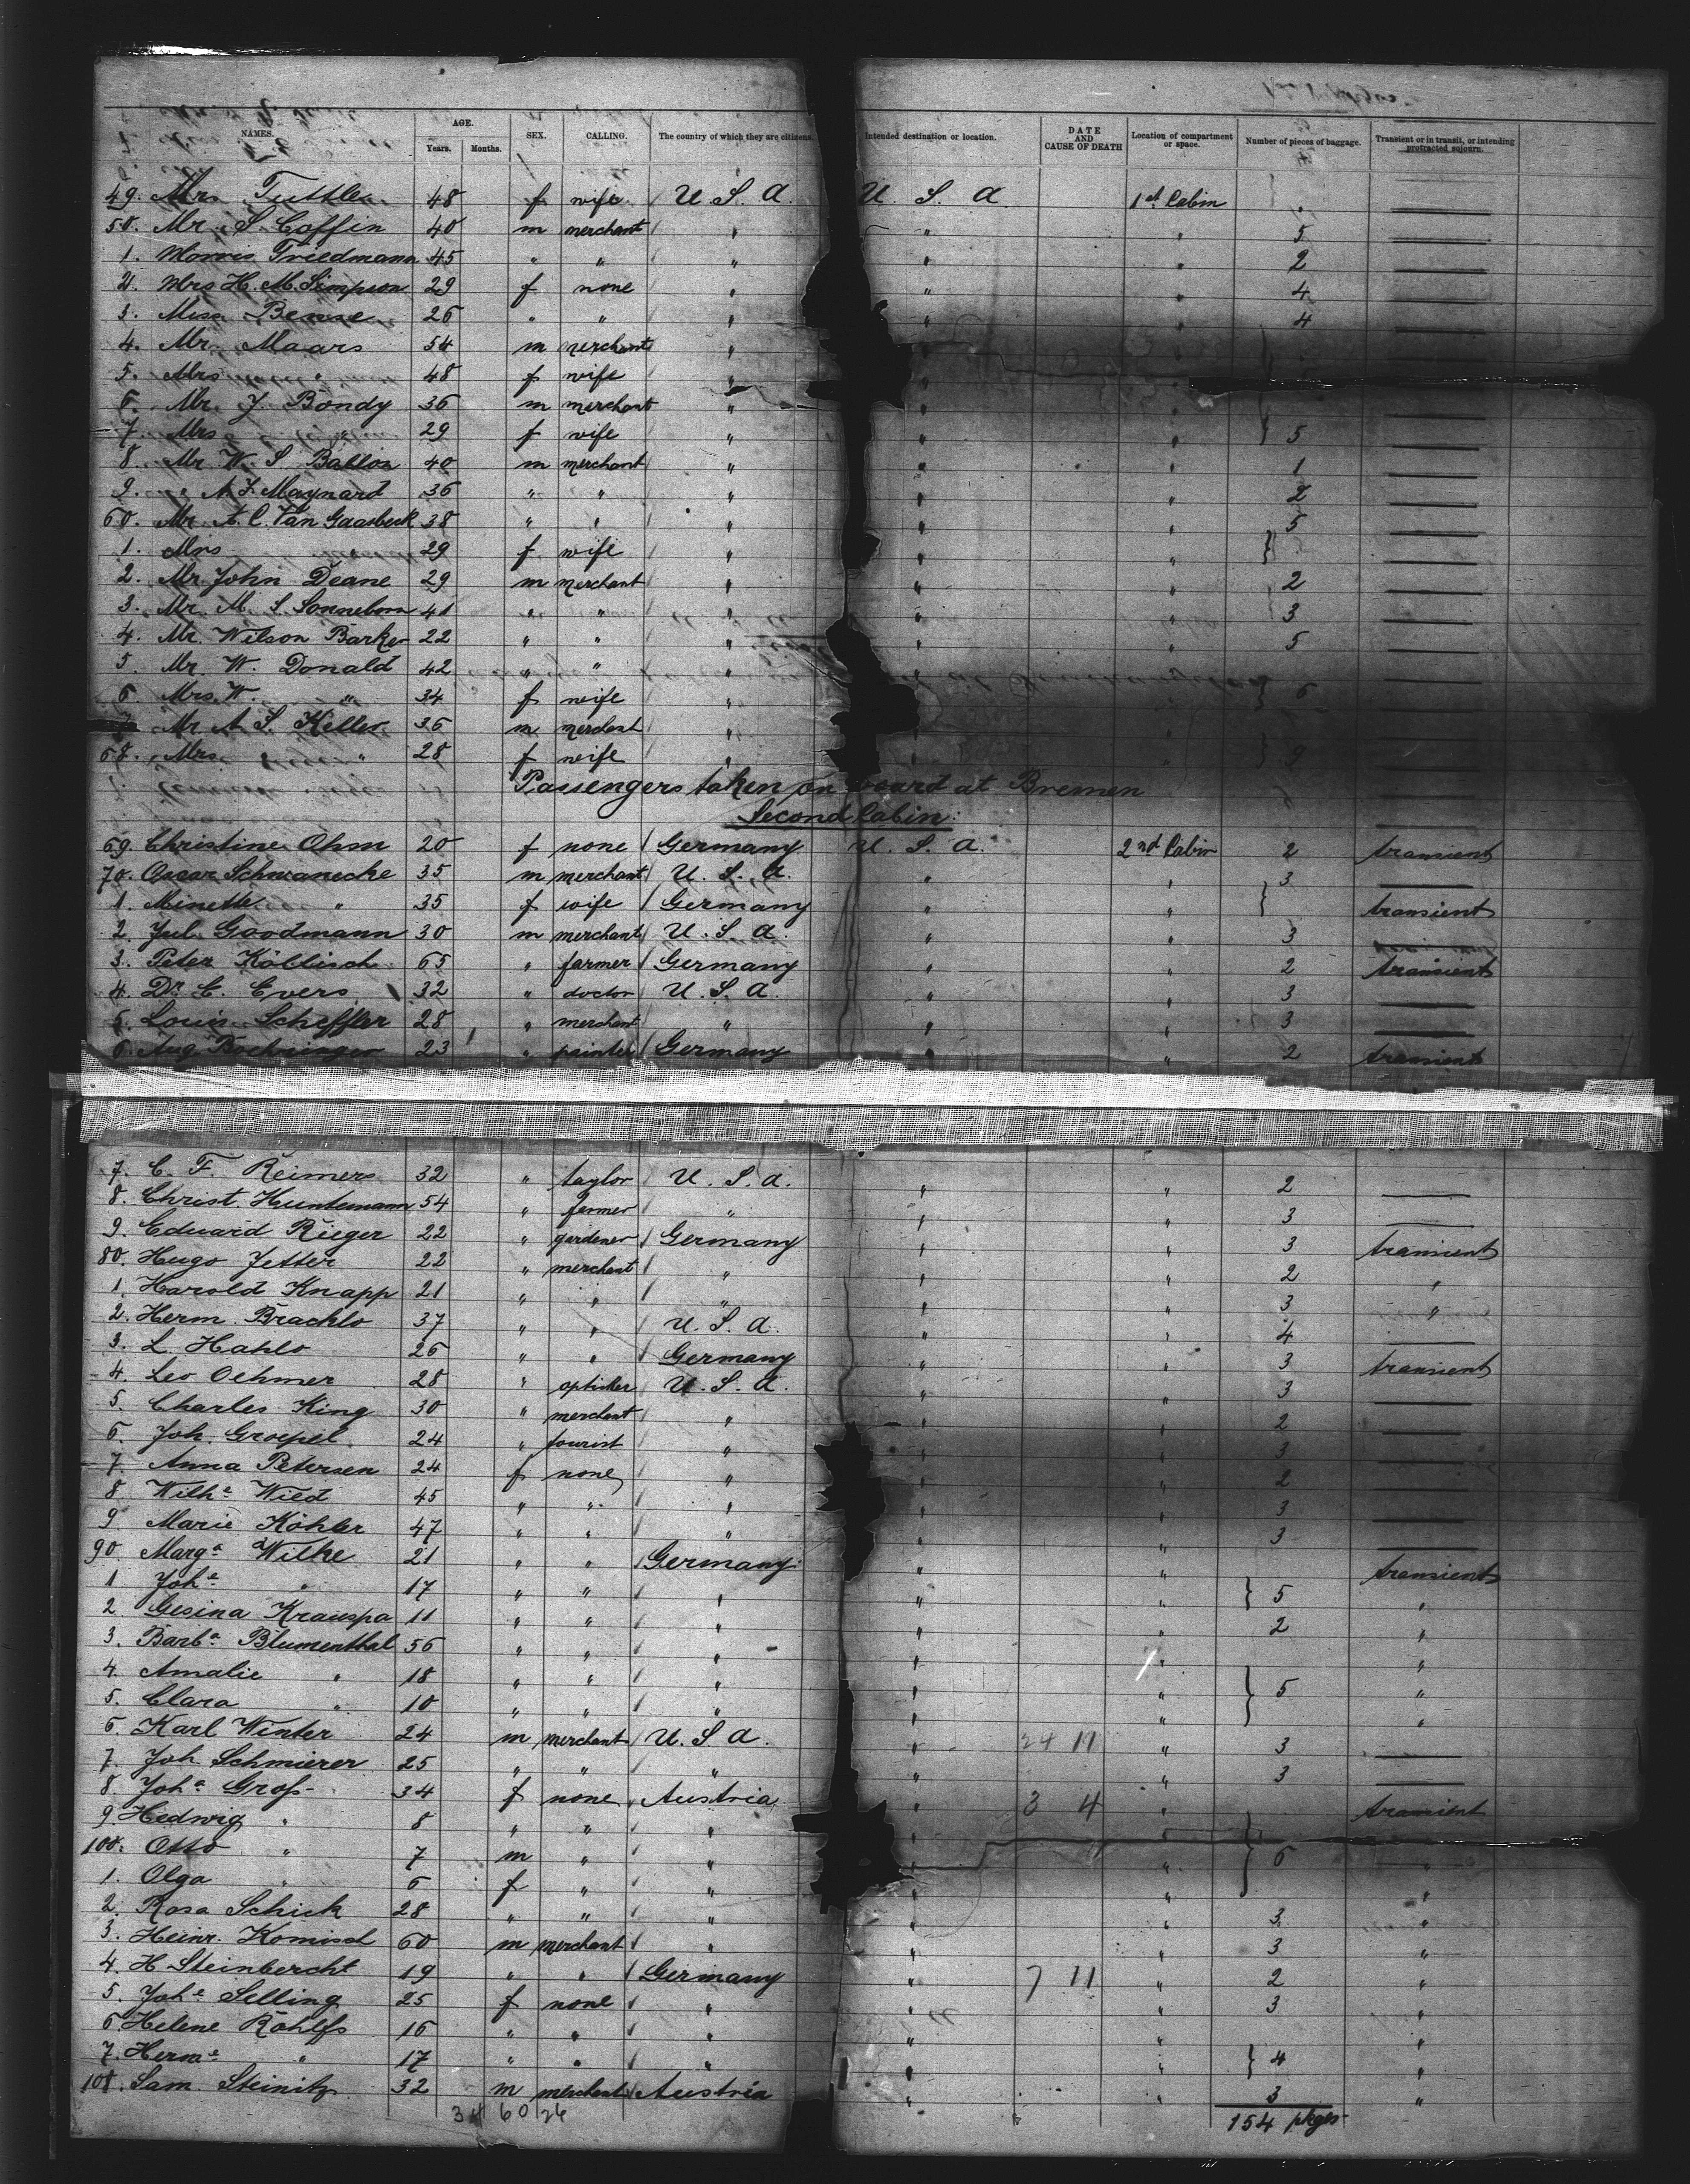 NAMES. AGE. Years. Months. SEX. CALLING. The country of which they are citizens. Intended destination or location. DATE AND CAUSE OF DEATH Location of compartment or space. Number of pieces of baggage. Transient or in transit, or intending protracted sojourn.
49. Mrs Tuttle 48 f wife U. S. A. U. S. A 1st Cabin
50. Mr. S. Coffin 40 m merchant " " " 5
1. Morris Friedmann 45 " " " " " 2
2. Mrs H. M. Simpson 29 f none " " " 4
3. Miss Bense 26 " " " " " 4
4. Mr. Maars 54 m merchant " "
5. Mrs " 48 f wife " "
6. Mr. J. Bondy 36 m merchant " " "
7. Mrs " 29 f wife " " " 5
8. Mr W. S. Ballon 40 m merchant " " " 1
9. " A. F. Maynard 36 " " " " " 2
60. Mr. A. C. Van Gaasbeck 38 " " " " " 5
1. Mrs 29 f wife " " "
2. Mr. John Deane 29 m merchant " " " 2
3. Mr. M. S. Sonneborn 41 " " " " " 3
4. Mr. Wilson Barker 22 " " " " " 5
5 Mr W. Donald 42 " " " "
6 Mrs. W. " 34 f wife " " " 6
Mr A. S. Keller 36 m merchant " "
68. Mrs " 28 f wife " " 9
Passengers taken on board at Bremen
Second Cabin:
69. Christine Ohm 20 f none Germany U. S. A. 2nd Cabin 2 transient
70. Oscar Schwanecke 35 m merchant U. S. A. " " 3
1. Minette " 35 f wife Germany " " transient
2. Jul. Goodmann 30 m merchant U. S. A. " " 3
3. Peter Köllisch 65 " farmer Germany " " 2 transient
4. Dr. C. Evers 32 " doctor U. S. A. " " 3
5. Louis Scheffler 28 " merchant " " " 3
6. Aug. Boehringer 23 " painter Germany " " 2 transient
7. C. F. Reimers 32 " taylor U. S. A. " " 2
8. Christ. Huntemann 54 " farmer " " " 3
9. Eduard Rieger 22 " gardener Germany " " 3 transient
80. Hugo Jetter 22 " merchant " " " 2 "
1. Harold Knapp 21 " " " " " 3 "
2. Herm. Bracklo 37 " " U. S. A. " " 4
3. L. Hahlo 26 " " Germany " " 3 transient
4. Leo Oehmer 28 " opticker U. S. A. " " 3
5. Charles King 30 " merchant " " " 2
6. Joh. Groepel 24 " tourist " " " 3
7. Anna Petersen 24 f none " " " 2
8 Wilhe Wied 45 " " " " " 3
9 Marie Köhler 47 " " " " " 3
90. Marga Wilke 21 " " Germany " " transient
1 Johe " 17 " " " " " 5 "
2 Gesina Krauspa 11 " " " " " 2 "
3. Barba Blumenthal 56 " " " " " "
4. Amalie " 18 " " " " " 5 "
5. Clara " 10 " " " " " "
6. Karl Winter 24 m merchant U. S. A. " 24 11 " 3
7. Joh. Schmierer 25 " " " " " 3
8 Joha Groß 34 f none Austria " 3 4 " transient
9 Hedwig " 8 " " " "
100. Otto " 7 m " " " " 6 "
1. Olga " 6 f " " " " "
2. Rosa Schick 28 " " " " " 3 "
3. Heinr. Komisch 60 m merchant " " " 3 "
4. H Steinbercht 19 " " Germany " 7 11 " 2 "
5. Johe Selling 25 f none " " " 3 "
6 Helene Rohlfs 16 " " " " " "
7. Herme " 17 " " " " " 4 "
108. Sam. Steinitz 32 m merchant Austria " " 3 "
34 60 26 154 pkges